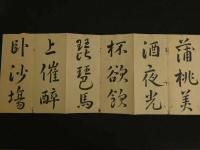 蒲桃美
酒夜光
杯欲飲
琵琶馬
上催醉
卧沙場